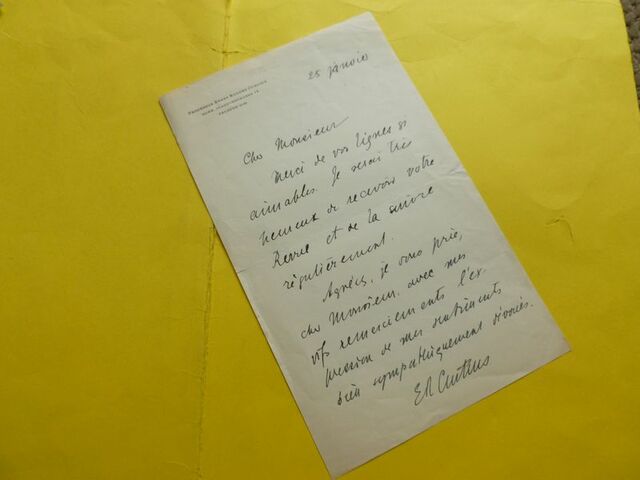 Professor Ernst Robert Curtius
25 janvier
Cher Monsieur
Merci de vos lignes si
aimables. Je serai très
heureux de recevoir votre
Revue et de la suivre
régulièrement.
Agréez, je vous prie,
cher Monsieur, avec mes
vifs remerciements l'ex-
pression de mes sentiments
bien sympathiquement dévoués.
ER Curtius